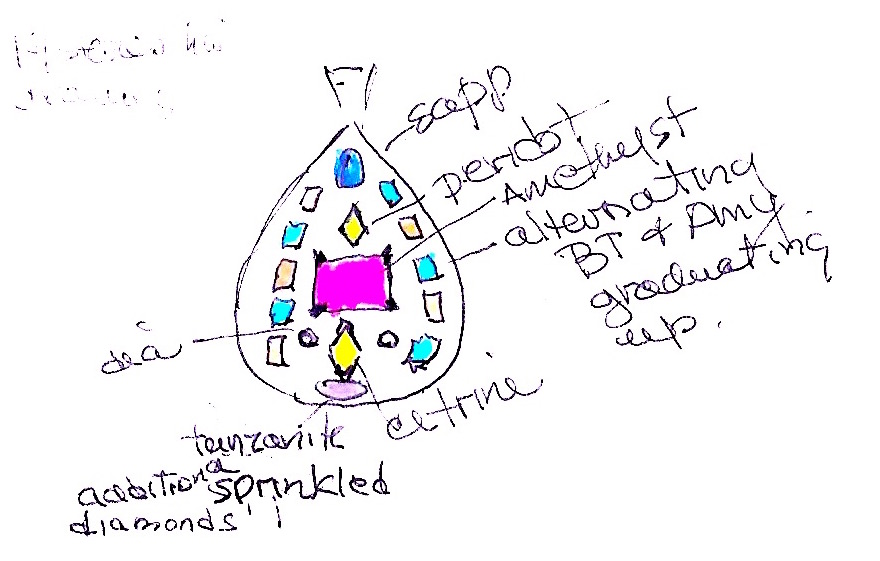 sapp
peridot
Amethyst
alternating
BT & Amy
graduating
up.
dia
citrine
tanzanite
additional
sprinkled
diamonds